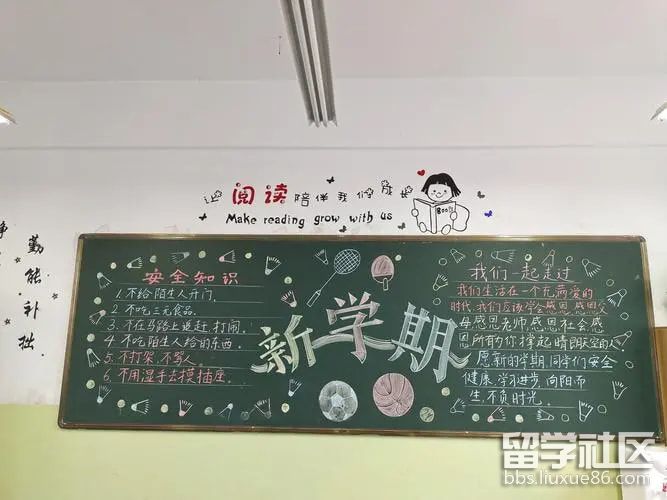 让阅读陪伴我们成长
Make reading grow with us
勤能补拙
安全知识
1.不给陌生人开门.
2.不吃三无食品.
3.不在马路上追赶、打闹.
4.不吃陌生人给的东西.
5.不打架、不骂人.
6.不用湿手去摸插座.
新学期
我们一起走过
我们生活在一个充满爱的
时代,我们应该学会感恩,感恩父
母感恩老师感恩社会感
恩所有的你撑起晴朗天空的人.
愿新的学期,同学们安全
健康,学习进步,向阳而
生,不负时光.
BOOK
留学社区
bbs.liuxue86.com